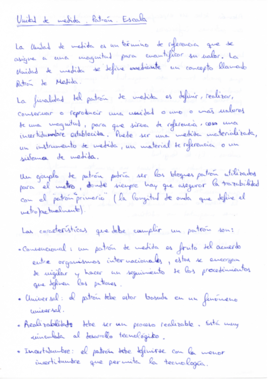 Unidad de medida. Patrón Escala
La Unidad de medida es un término de referencia que se
asigna a una magnitud para cuantificar su valor. La
Unidad de medida se define mediante un concepto llamado
Patrón de Medida.
La finalidad del patrón de medida es definir, realizar,
conservar o reproducir una unidad o uno o más valores
de una magnitud, para que sirvan de referencia, con una
incertidumbre establecida. Puede ser una medida materializada,
un instrumento de medida, un material de referencia o un
sistema de medida.
Un ejemplo de patrón podría ser los bloques patrón utilizados
para el metro, donde siempre hay que asegurar la trazabilidad
con el patrón primario (la longitud de onda que define el
metro actualmente).
Las características que debe cumplir un patrón son:
• Convencional: un patrón de medida es fruto del acuerdo
entre organismos internacionales, estos se encargan
de vigilar y hacer un seguimiento de los procedimientos
que definen los patrones.
• Universal: el patrón debe estar basado en un fenómeno
universal.
• debe ser un proceso realizable. Está muy
vinculado al desarrollo tecnológico.
• Incertidumbre: el patrón debe definirse con la menor
incertidumbre que permita la tecnología.